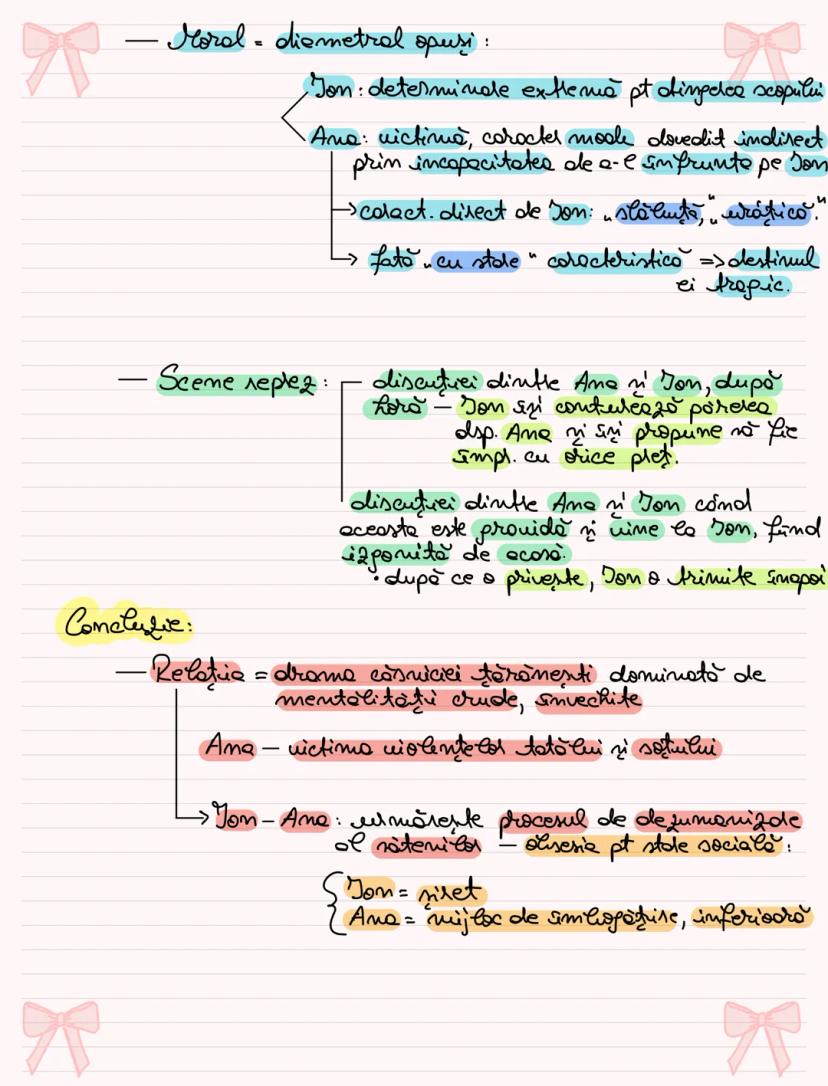 — Moral = diametral opuși :
Ion : determinare extremă pt atingerea scopului
Ana : victimă, caracter moale dovedit indirect
prin incapacitatea de a-l înfrunta pe Ion
→ caract. direct de Ion: „slăbuță”, „urâțică.”
→ fată „cu stare” caracteristică => destinul
ei tragic.
— Scene reprez : discuției dintre Ana și Ion, după
horă — Ion își conturează părerea
dsp. Ana și își propune să fie
împl. cu orice preț.
discuției dintre Ana și Ion când
aceasta este gravidă și vine la Ion, fiind
izgonită de acasă.
• după ce o privește, Ion o trimite înapoi
Concluzie:
— Relația = drama căsniciei țărănești dominată de
mentalități crude, învechite
Ana — victima violențelor tatălui și soțului
→ Ion – Ana : urmărește procesul de dezumanizare
al sătenilor — obsesia pt stare socială :
Ion = șiret
Ana = mijloc de îmbogățire, inferioară